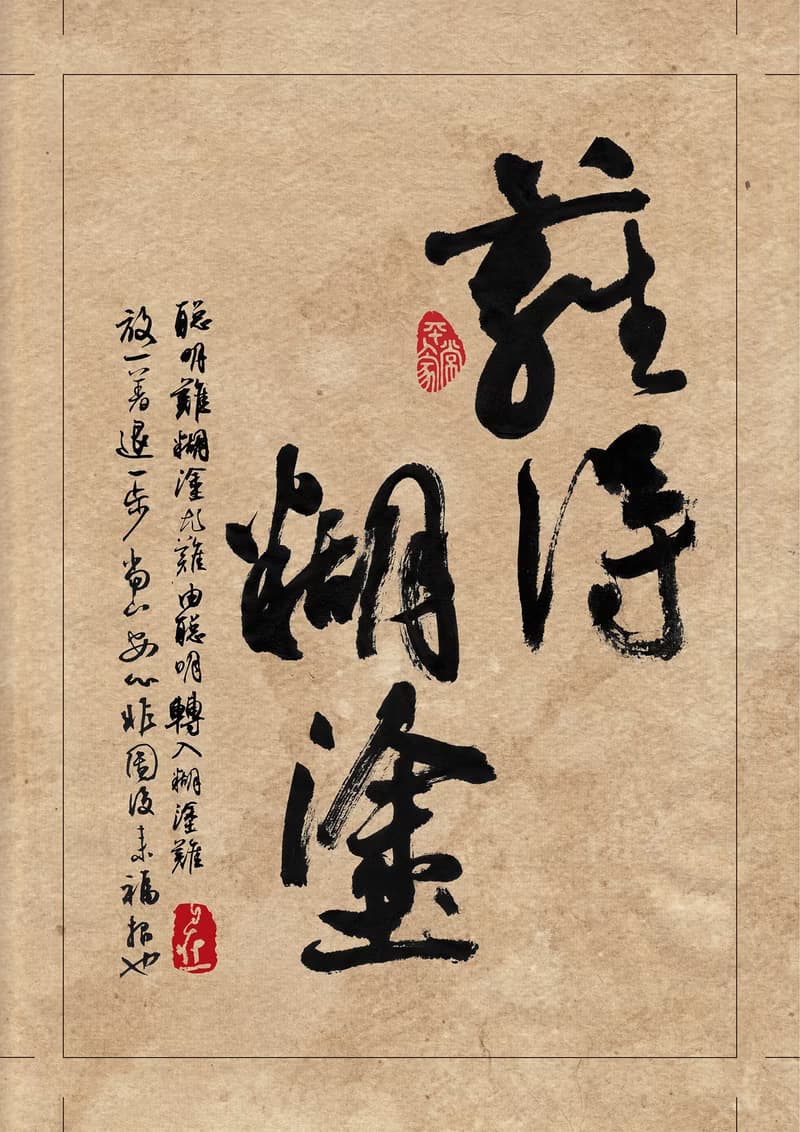 難得
糊塗
平常人家
聰明難糊塗尤難由聰明轉入糊塗難
放一著退一步當下安心非圖後來福報也